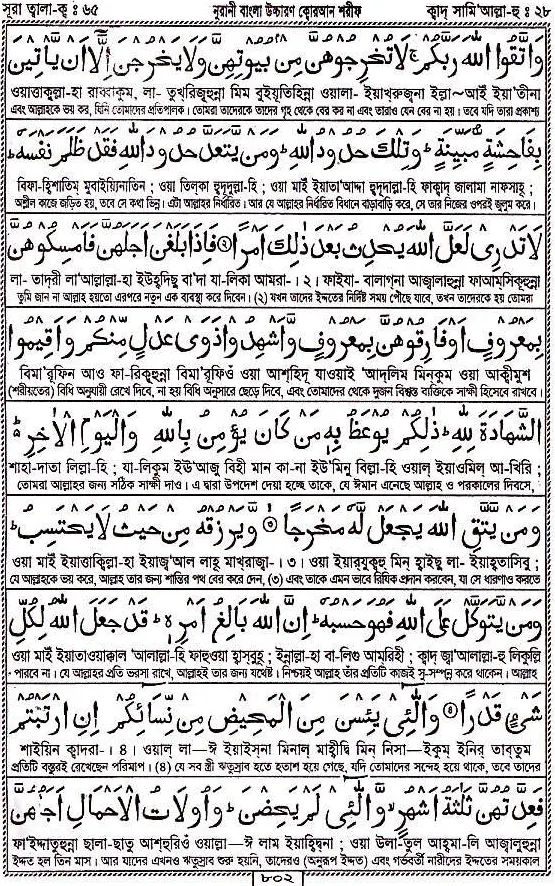 সূরা ত্বালা-ক্ব : ৬৫ নূরানী বাংলা উচ্চারণ কোরআন শরীফ ক্বাদ্ সামি'আল্লা-হু : ২৮
وَاتَّقُوا اللّٰهَ رَبَّكُمْ ۚ لَا تُخْرِجُوْهُنَّ مِنْۢ بُيُوْتِهِنَّ وَلَا يَخْرُجْنَ اِلَّاۤ اَنْ يَّاْتِيْنَ
ওয়াত্তাকুল্লা-হা রাব্বাকুম্, লা- তুখরিজূহুন্না মিম বুইয়ূতিহিন্না ওয়ালা- ইয়াখ্রুজ্না ইল্লা~আইঁ ইয়া'তীনা
এবং আল্লাহকে ভয় কর, যিনি তোমাদের প্রতিপালক। তোমরা তাদেরকে তাদের গৃহ থেকে বের কর না এবং তারাও যেন বের না হয়। তবে যদি তারা প্রকাশ্য
بِفَاحِشَةٍ مُّبَيِّنَةٍ ؕ وَتِلْكَ حُدُوْدُ اللّٰهِ ؕ وَمَنْ يَّتَعَدَّ حُدُوْدَ اللّٰهِ فَقَدْ ظَلَمَ نَفْسَهٗ ؕ
বিফা-হিশাতিম্ মুবাইয়্যিনাতিন ; ওয়া তিল্কা হুদূদুল্লা-হি ; ওয়া মাইঁ ইয়াতা'আদ্দা হুদূদাল্লা-হি ফাক্বাদ্ জালামা নাফসাহূ ;
অশ্লীল কাজে জড়িত হয়, তবে সে কথা ভিন্ন। এটা আল্লাহর নির্ধারিত। আর যে আল্লাহর নির্ধারিত বিধানে বাড়াবাড়ি করে, সে তার নিজের ওপরই জুলুম করে।
لَا تَدْرِيْ لَعَلَّ اللّٰهَ يُحْدِثُ بَعْدَ ذٰلِكَ اَمْرًا ۝ فَاِذَا بَلَغْنَ اَجَلَهُنَّ فَاَمْسِكُوْهُنَّ
লা- তাদ্রী লা'আল্লাল্লা-হা ইউহ্দিছু বা'দা যা-লিকা আমরা-। ২। ফাইযা- বালাগ্না আজ্বালাহুন্না ফাআম্সিকূহুন্না
তুমি জান না আল্লাহ হয়তো এরপরে নতুন এক ব্যবস্থা করে দিবেন। (২) যখন তাদের ইদ্দতের নির্দিষ্ট সময় পৌঁছে যাবে, তখন তাদেরকে হয় তোমরা
بِمَعْرُوْفٍ اَوْ فَارِقُوْهُنَّ بِمَعْرُوْفٍ وَّاَشْهِدُوْا ذَوَيْ عَدْلٍ مِّنْكُمْ وَاَقِيْمُوا
বিমা'রূফিন আও ফা-রিকূহুন্না বিমা'রূফিওঁ ওয়া আশ্হিদূ যাওয়াই 'আদ্লিম মিন্কুম ওয়া আক্বীমুশ
(শরীয়তের) বিধি অনুযায়ী রেখে দিবে, না হয় বিধি অনুসারে ছেড়ে দিবে, এবং তোমাদের থেকে দুজন বিশ্বস্ত ব্যক্তিকে সাক্ষী হিসেবে রাখবে।
الشَّهَادَةَ لِلّٰهِ ؕ ذٰلِكُمْ يُوْعَظُ بِهٖ مَنْ كَانَ يُؤْمِنُ بِاللّٰهِ وَالْيَوْمِ الْاٰخِرِ ؕ
শাহা-দাতা লিল্লা-হি ; যা-লিকুম ইউ'আজু বিহী মান কা-না ইউ'মিনু বিল্লা-হি ওয়াল্ ইয়াওমিল্ আ-খিরি ;
তোমরা আল্লাহর জন্য সঠিক সাক্ষী দাও। এ দ্বারা উপদেশ দেয়া হচ্ছে তাকে, যে ঈমান এনেছে আল্লাহ ও পরকালের দিবসে,
وَمَنْ يَّتَّقِ اللّٰهَ يَجْعَلْ لَّهٗ مَخْرَجًا ۝ وَّيَرْزُقْهُ مِنْ حَيْثُ لَا يَحْتَسِبُ ؕ
ওয়া মাইঁ ইয়াত্তাকিল্লা-হা ইয়াজ্ব'আল লাহূ মাখ্রাজ্বা-। ৩। ওয়া ইয়ারযুকহু মিন্ হাইছু লা- ইয়াহ্তাসিবু ;
যে আল্লাহকে ভয় করে, আল্লাহ তার জন্য শান্তির পথ বের করে দেন, (৩) এবং তাকে এমন ভাবে রিযিক প্রদান করবেন, যা সে ধারণাও করতে
وَمَنْ يَّتَوَكَّلْ عَلَى اللّٰهِ فَهُوَ حَسْبُهٗ ؕ اِنَّ اللّٰهَ بَالِغُ اَمْرِهٖ ؕ قَدْ جَعَلَ اللّٰهُ لِكُلِّ
ওয়া মাইঁ ইয়াতাওয়াক্কাল 'আলাল্লা-হি ফাহুওয়া হাসবুহূ ; ইন্নাল্লা-হা বা-লিগু আমরিহী ; ক্বাদ্ জ্বা'আলাল্লা-হু লিকুল্লি
পারবে না। যে আল্লাহর প্রতি ভরসা রাখে, আল্লাহই তার জন্য যথেষ্ট। নিশ্চয়ই আল্লাহ তাঁর প্রতিটি কাজই সু-সম্পন্ন করে থাকেন। আল্লাহ
شَيْءٍ قَدْرًا ۝ وَالّٰٓـِٔيْ يَئِسْنَ مِنَ الْمَحِيْضِ مِنْ نِّسَآئِكُمْ اِنِ ارْتَبْتُمْ
শাইয়িন ক্বাদরা-। ৪। ওয়াল্ লা—ঈ ইয়াইস্না মিনাল্ মাহীদ্বি মিন্ নিসা—ইকুম্ ইনির্ তাব্তুম
প্রতিটি বস্তুরই রেখেছেন পরিমাপ। (৪) যে সব স্ত্রী ঋতুস্রাব হতে হতাশ হয়ে গেছে, যদি তোমাদের সন্দেহ হয়ে থাকে, তবে তাদের
فَعِدَّتُهُنَّ ثَلٰثَةُ اَشْهُرٍ ۙ وَّالّٰٓـِٔيْ لَمْ يَحِضْنَ ؕ وَاُولَاتُ الْاَحْمَالِ اَجَلُهُنَّ
ফা'ইদ্দাতুহুন্না ছালা-ছাতু আশ্হুরিওঁ ওয়াল্লা—ঈ লাম ইয়াহিদ্বনা ; ওয়া উলা-তুল আহ্মা-লি আজ্বালুহুন্না
ইদ্দত হল তিন মাস। আর যাদের এখনও ঋতুস্রাব শুরু হয়নি, তাদেরও (অনুরূপ ইদ্দত) এবং গর্ভবর্তী নারীদের ইদ্দতের সময়কাল
৮০২